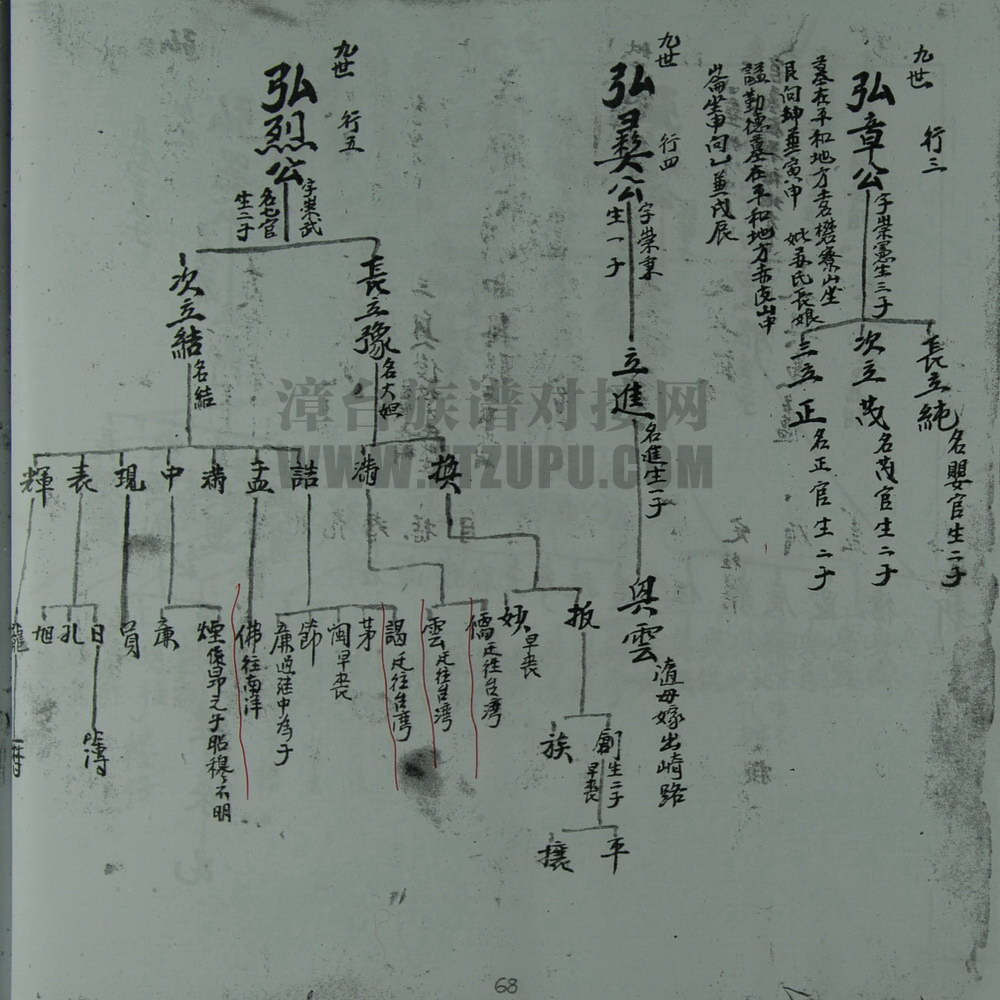 九世
行三
弘章公
字崇憲生三子
墓在平和地方土名礬寮山坐
艮向坤兼寅申 妣
氏長娘
謚勤德墓在平和地方赤
山中
崙坐申向乙兼戊辰
長立純
名嬰官生二子
次立茂
名茂官生二子
三立正
名正官生二子
九世
行四
弘彝公
字崇秉
生一子
立進
名進生一子
與雲
隨母嫁出崎路
九世
行五
弘烈公
字崇武
名七官
生二子
長立豫
名大妲
次立結
名結
換
滿
詰
孟
滿
中
現
表
輝
扳
早喪
儒
迁往台灣
雲
迁往台灣
謁
迁往台灣
茅
閩
早喪
節
廉
過繼中為子
佛
往南洋
煙
係昂之子昭穆不明
廉
員
日
孔
旭
龍
創
生二子
早喪
族
簿
平
攘
漳台族谱对接网
WWW.ZTZUPU.COM
68